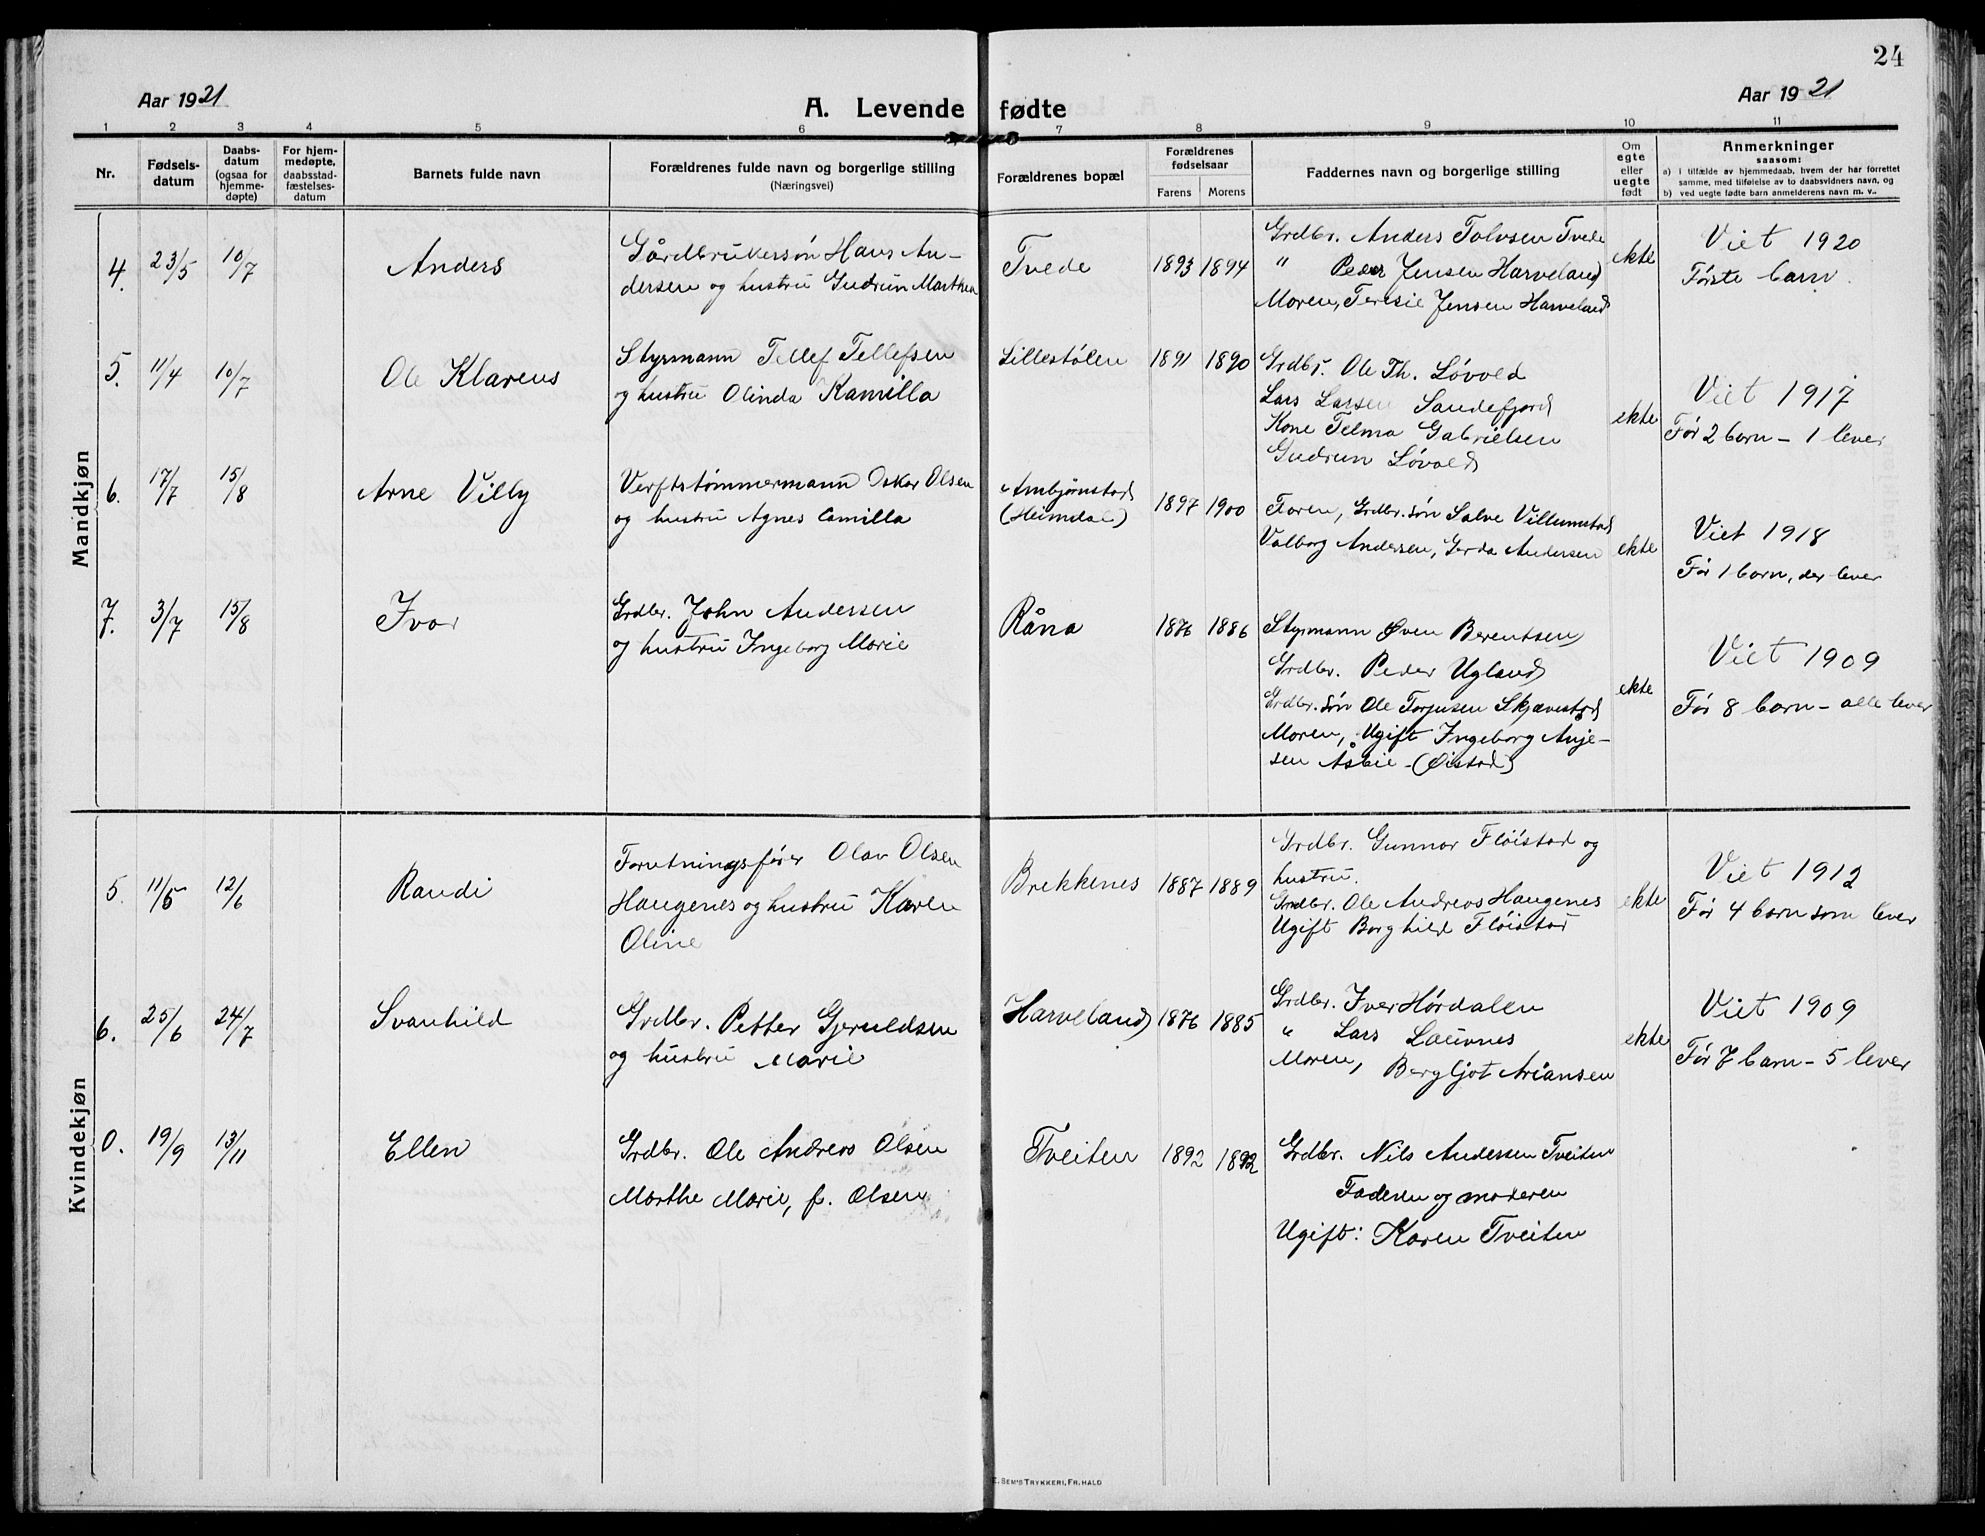 24
Aar 1921
A. Levende fødte
Aar 1921
1 2 3 4 5 6 7 8 9 10 11
Nr.
Fødsels-
datum
Daabs-
datum
(ogsaa for
hjemme-
døpte)
For hjem-
medøpte,
daabsstad-
fæstelses-
datum
Barnets fulde navn
Forældrenes fulde navn og borgerlige stilling
(Næringsvei)
Forældrenes bopæl
Forældrenes
fødselsaar
Farens Morens
Faddernes navn og borgerlige stilling
Om
egte
eller
uegte
født
Anmerkninger
saasom:
a) I tilfælde av hjemmedaab, hvem der har forrettet
samme, med tilføielse av to daabsvidners navn, og
b) ved uegte fødte barn anmelderens navn m. v..
Mandkjøn
4. 23/5 10/7 Anders
Gårdbrukersøn Hans An-
dersen og hustru Gudrun Marthea
Tvede 1893 1894
Grdbr. Anders Talvsen Tvede
" Peder Jensen Harveland
Moren, Teresie Jensen Harveland
ekte
Viet 1920
Første barn.
5. 11/4 10/7 Ole Klarens
Styrmann Tellef Tellefsen
og hustru Olinda Kamilla
Lillestølen 1891 1890
Grdbr. Ole Th. Løvold
Lars Larsen Sandefjord
Kone Telma Gabrielsen
Gudrun Løvold
ekte
Viet 1917
Før 2 barn - 1 lever
6. 17/7 15/8 Arne Villy
Verftstømmermann Oskar Olsen
og hustru Agnes Camilla
Ambjørnstad
(Heimdal) 1897 1900
Faren, Grdbr.søn Salve Villumstad
Valborg Andersen, Gerda Andersen
ekte
Viet 1918
Før 1 barn, der lever
7. 3/7 15/8 Ivar
Grdbr. John Andersen
og hustru Ingeborg Marie
Råna 1876 1886
Styrmann Øven Berentsen
Grdbr. Peder Ugland
Grdbr.søn Ole Torjusen Skjævestad
Moren, Ugift Ingeborg Anje-
sen Åsbie - (Øistad)
ekte
Viet 1909
Før 8 barn - alle lever
Kvindekjøn
5. 11/5 12/6 Randi
Forretningsfører Olav Olsen
Haugenes og hustru Karen
Oline
Brekkenes 1887 1889
Grdbr. Gunnar Fløistad og
hustru.
Grdbr. Ole Andreas Haugenes
Ugift Borghild Fløistad
ekte
Viet 1912
Før 4 barn som lever
6. 25/6 24/7 Svanhild
Grdbr. Petter Gjeruldsen
og hustru Marie
Harveland 1876 1885
Grdbr. Iver Hørdalen
" Lars Launes
Moren, Bergljot Ariansen
ekte
Viet 1909
Før 7 barn - 5 lever
0. 19/9 13/11 Ellen
Grdbr. Ole Andreas Olsen
Marthe Marie, f. Olsen
Tveiten 1892 1892
Grdbr. Nils Andersen Tveiten
Faderen og moderen
Ugift: Karen Tveiten
E. SEM'S TRYKKERI, FR.HALD